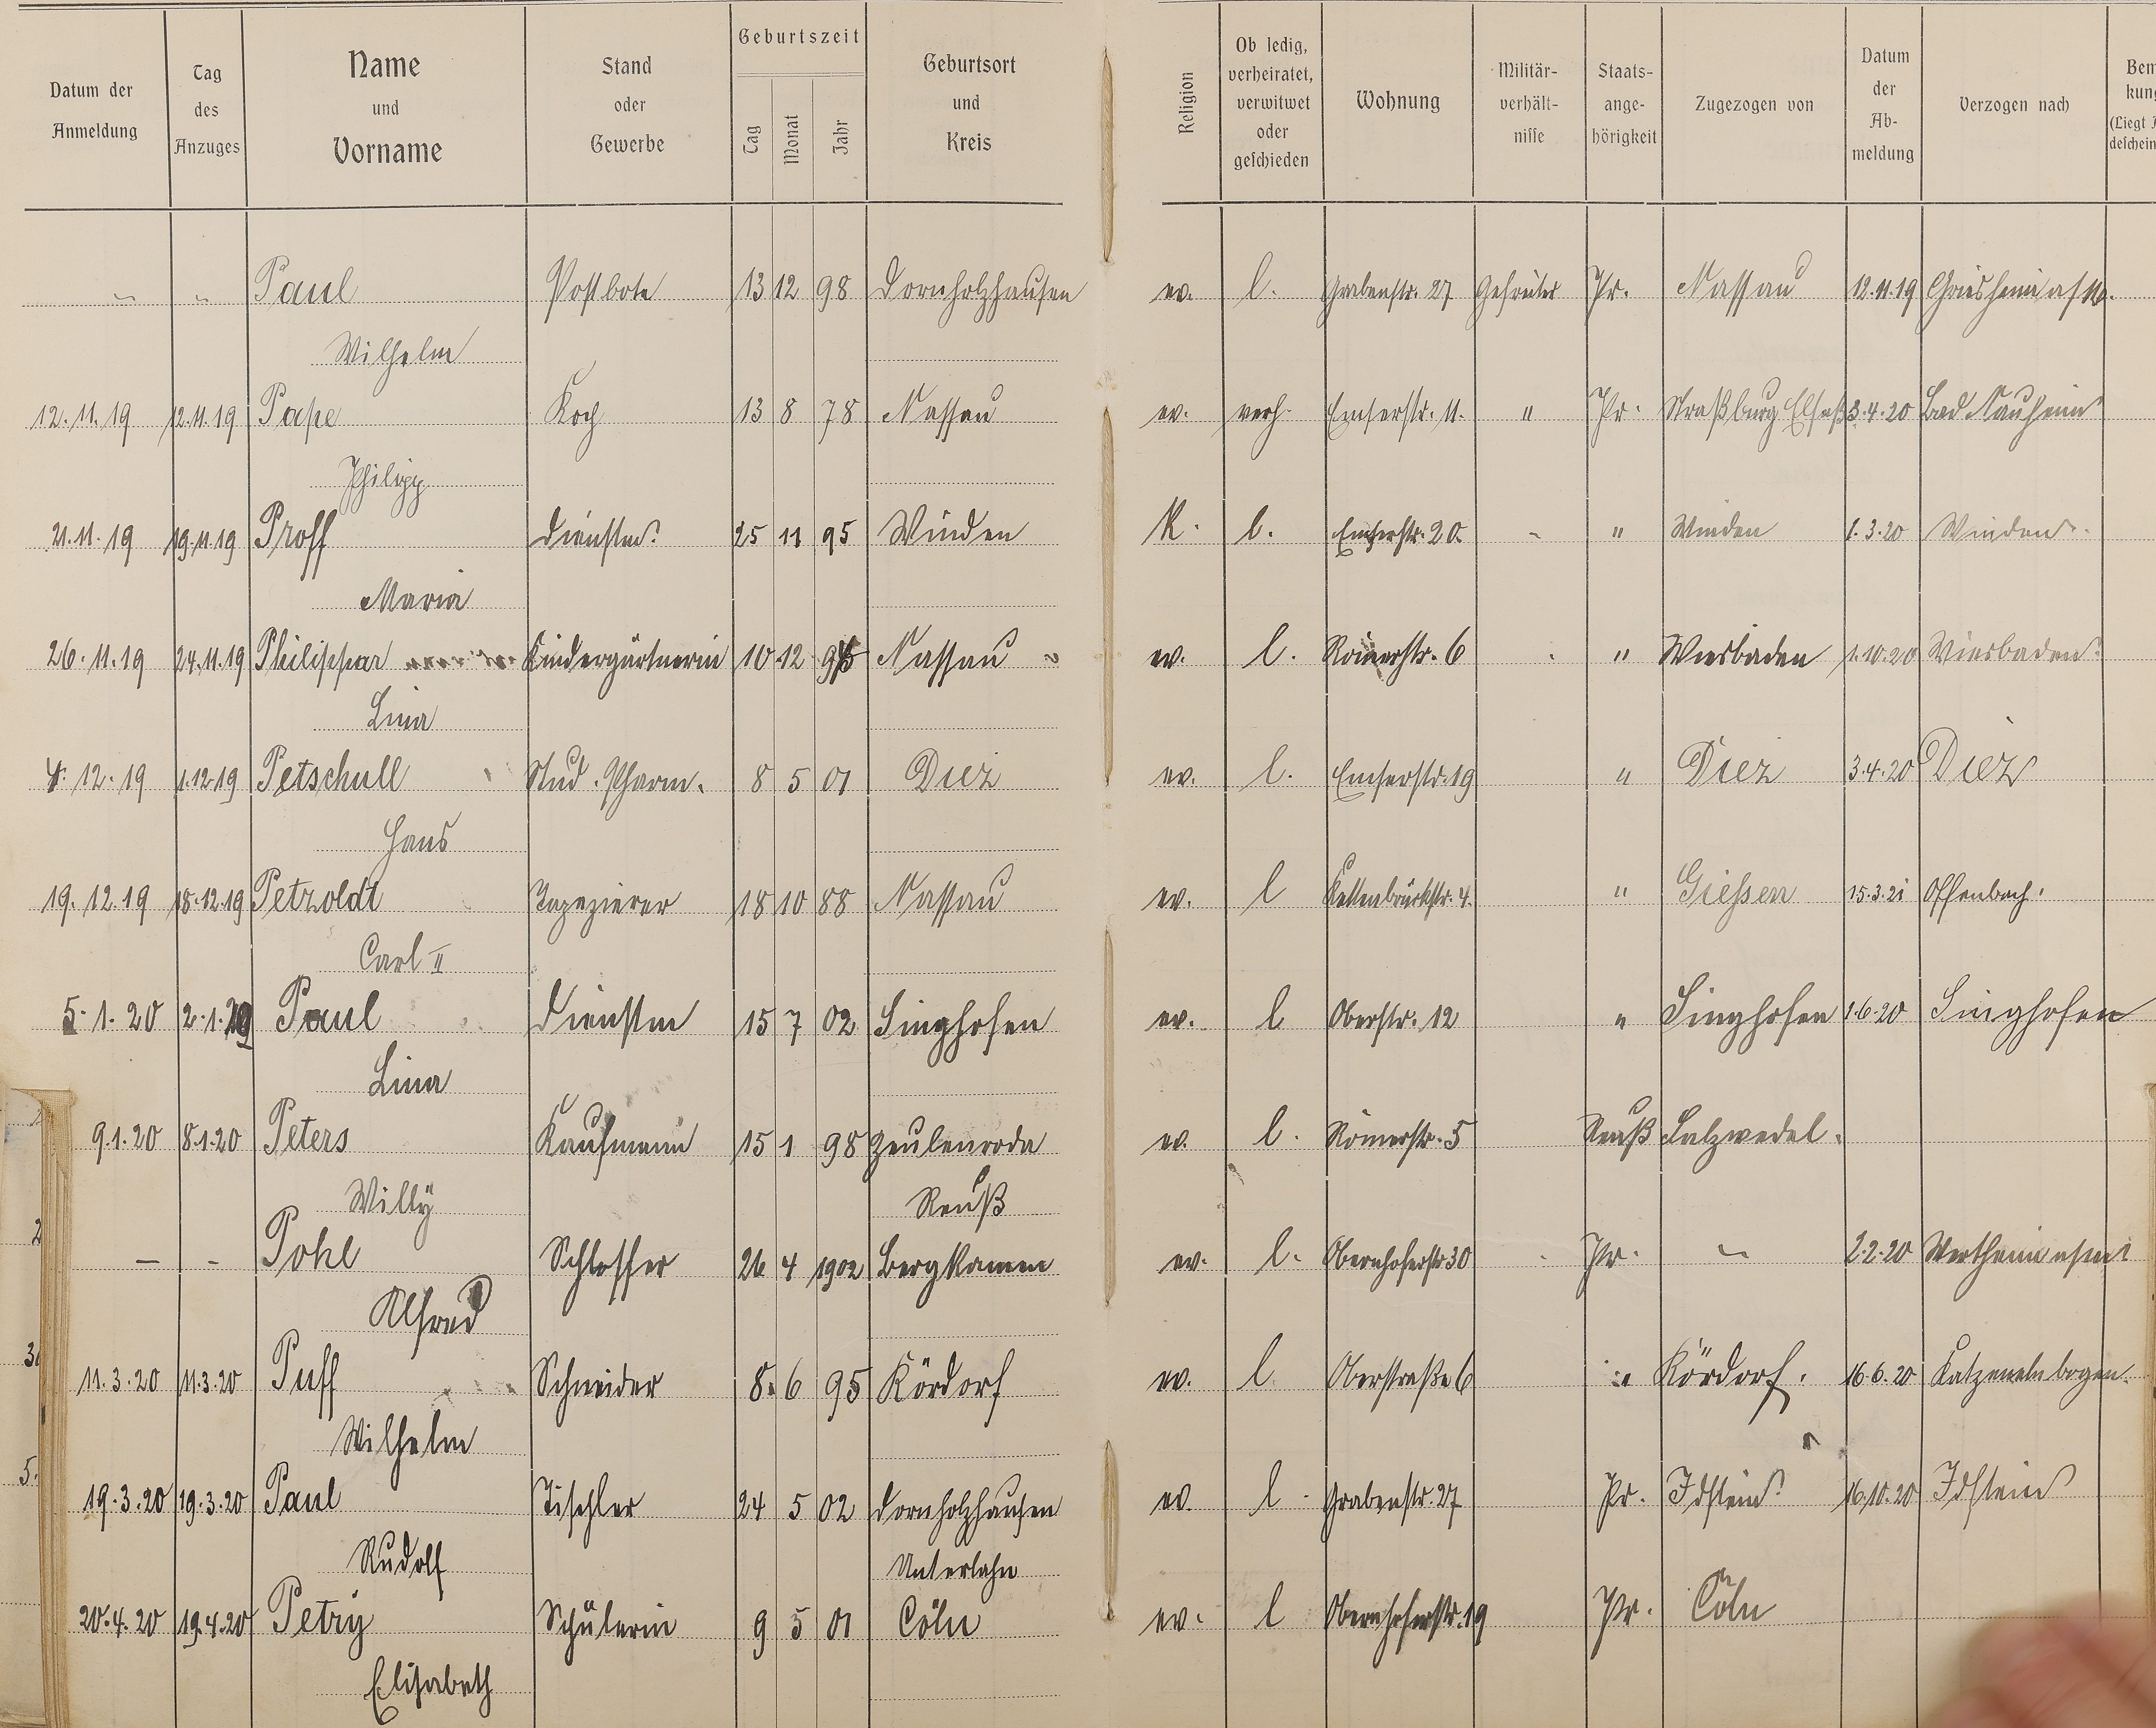 Datum der Anmeldung | Tag des Anzuges | Name und Vorname | Stand oder Gewerbe | Geburtszeit Tag Monat Jahr | Geburtsort und Kreis | Religion | Ob ledig, verheiratet, verwitwet oder geschieden | Wohnung | Militär-verhält-nisse | Staats-ange-hörigkeit | Zugezogen von | Datum der Ab-meldung | Verzogen nach
" " Paul Postbote 13 12 98 Dornholzhausen ev. l. Grabenstr. 27 Gefreiter Pr. Nassau 12.11.19 Griesheim a/M.
Wilhelm
12.11.19 12.11.19 Pape Koch 13 8 78 Nassau ev. verh. Emserstr. 11. " Pr. Straßburg Elsaß 3.4.20 Bad Nauheim
Philipp
21.11.19 19.11.19 Proff Dienstm. 25 11 95 Winden K. l. Emserstr. 20 - " Winden 1.3.20 Winden
Maria
26.11.19 24.11.19 Philippar Kindergärtnerin 10 12 Nassau ev. l. Römerstr. 6 " Wiesbaden 1.10.20 Wiesbaden
Lina
4.12.19 1.12.19 Petschull Stud. Pharm. 8 5 01 Diez ev. l. Emserstr. 19 " Diez 3.4.20 Diez
Hans
19.12.19 18.12.19 Petzoldt Tapezierer 18 10 88 Nassau ev. l Kettenbrückstr. 4. " Giessen 15.3.21 Offenbach.
Carl II
5.1.20 2.1.20 Paul Dienstm 15 7 02 Singhofen ev. l Oberstr. 12 " Singhofen 1.6.20 Singhofen
Lina
9.1.20 8.1.20 Peters Kaufmann 15 1 98 Zeulenroda ev. l. Römerstr. 5 Reuß Salzwedel.
Willy Reuß
— - Pohl Schlosser 26 4 1902 Bergkamen ev. l. Obernhoferstr 30 Pr. " 2.2.20 Wertheim
Alfred
11.3.20 11.3.20 Puff Schneider 8 6 95 Kördorf ev. l Oberstraße 6 " Kördorf. 16.6.20 Katzenelnbogen.
Wilhelm
19.3.20 19.3.20 Paul Tischler 24 5 02 Dornholzhausen ev. l Grabenstr. 27 Pr. Idstein 16.10.20 Idstein
Rudolf Unterlahn
20.4.20 19.4.20 Petry Schülerin 9 5 01 Cöln ev. l Obernhoferstr. 19 Pr. Cöln
Elisabeth